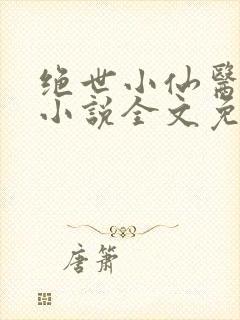 绝世小仙醫
小説全文免
唐箫